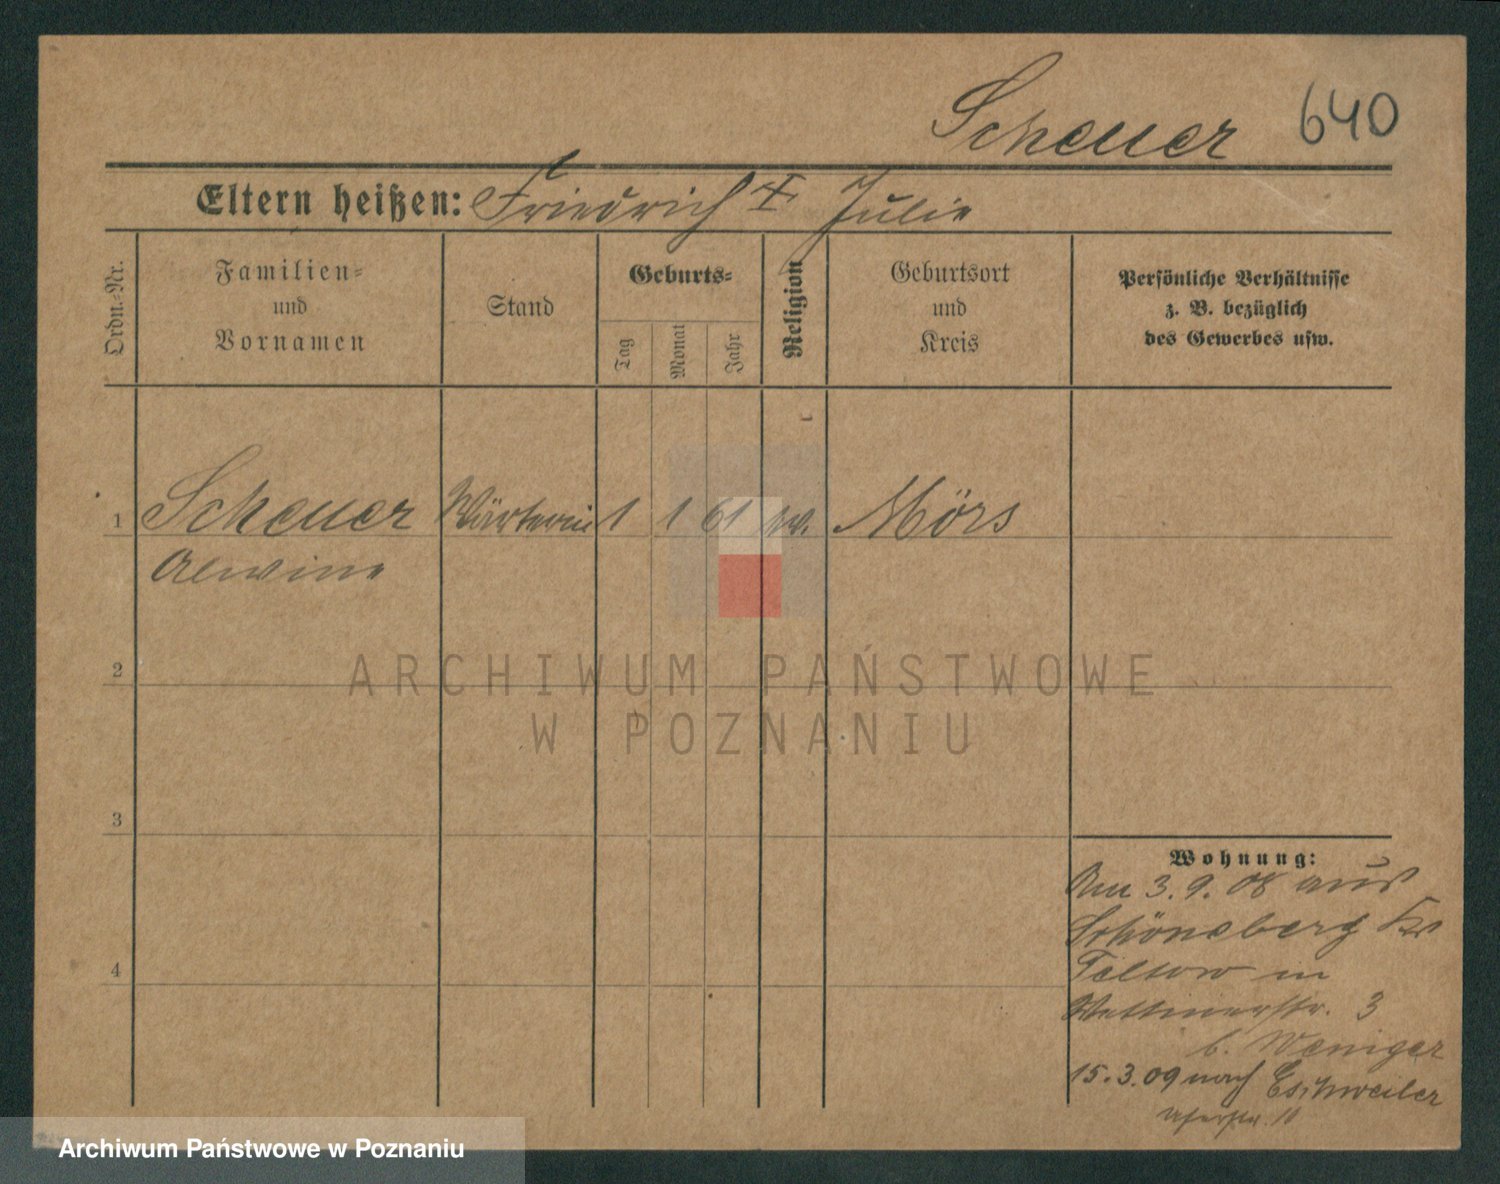 Scheuer 640
Eltern heißen: Friedrich u. Julie
Ordn.-Nr.
Familien-
und
Vornamen
Stand
Geburts-
Tag
Monat
Jahr
Religion
Geburtsort
und
Kreis
Persönliche Verhältnisse
z. B. bezüglich
des Gewerbes usw.
1 Scheuer Wärterin 1 1 61 ev. Mörs
Alwine
2
ARCHIWUM PAŃSTWOWE
W POZNANIU
3
4
Wohnung:
Am 3.9.08 aus
Schöneberg Kr
Teltow in
Wettinerstr. 3
b. Weniger
15.3.09 nach Eschweiler
Archiwum Państwowe w Poznaniu